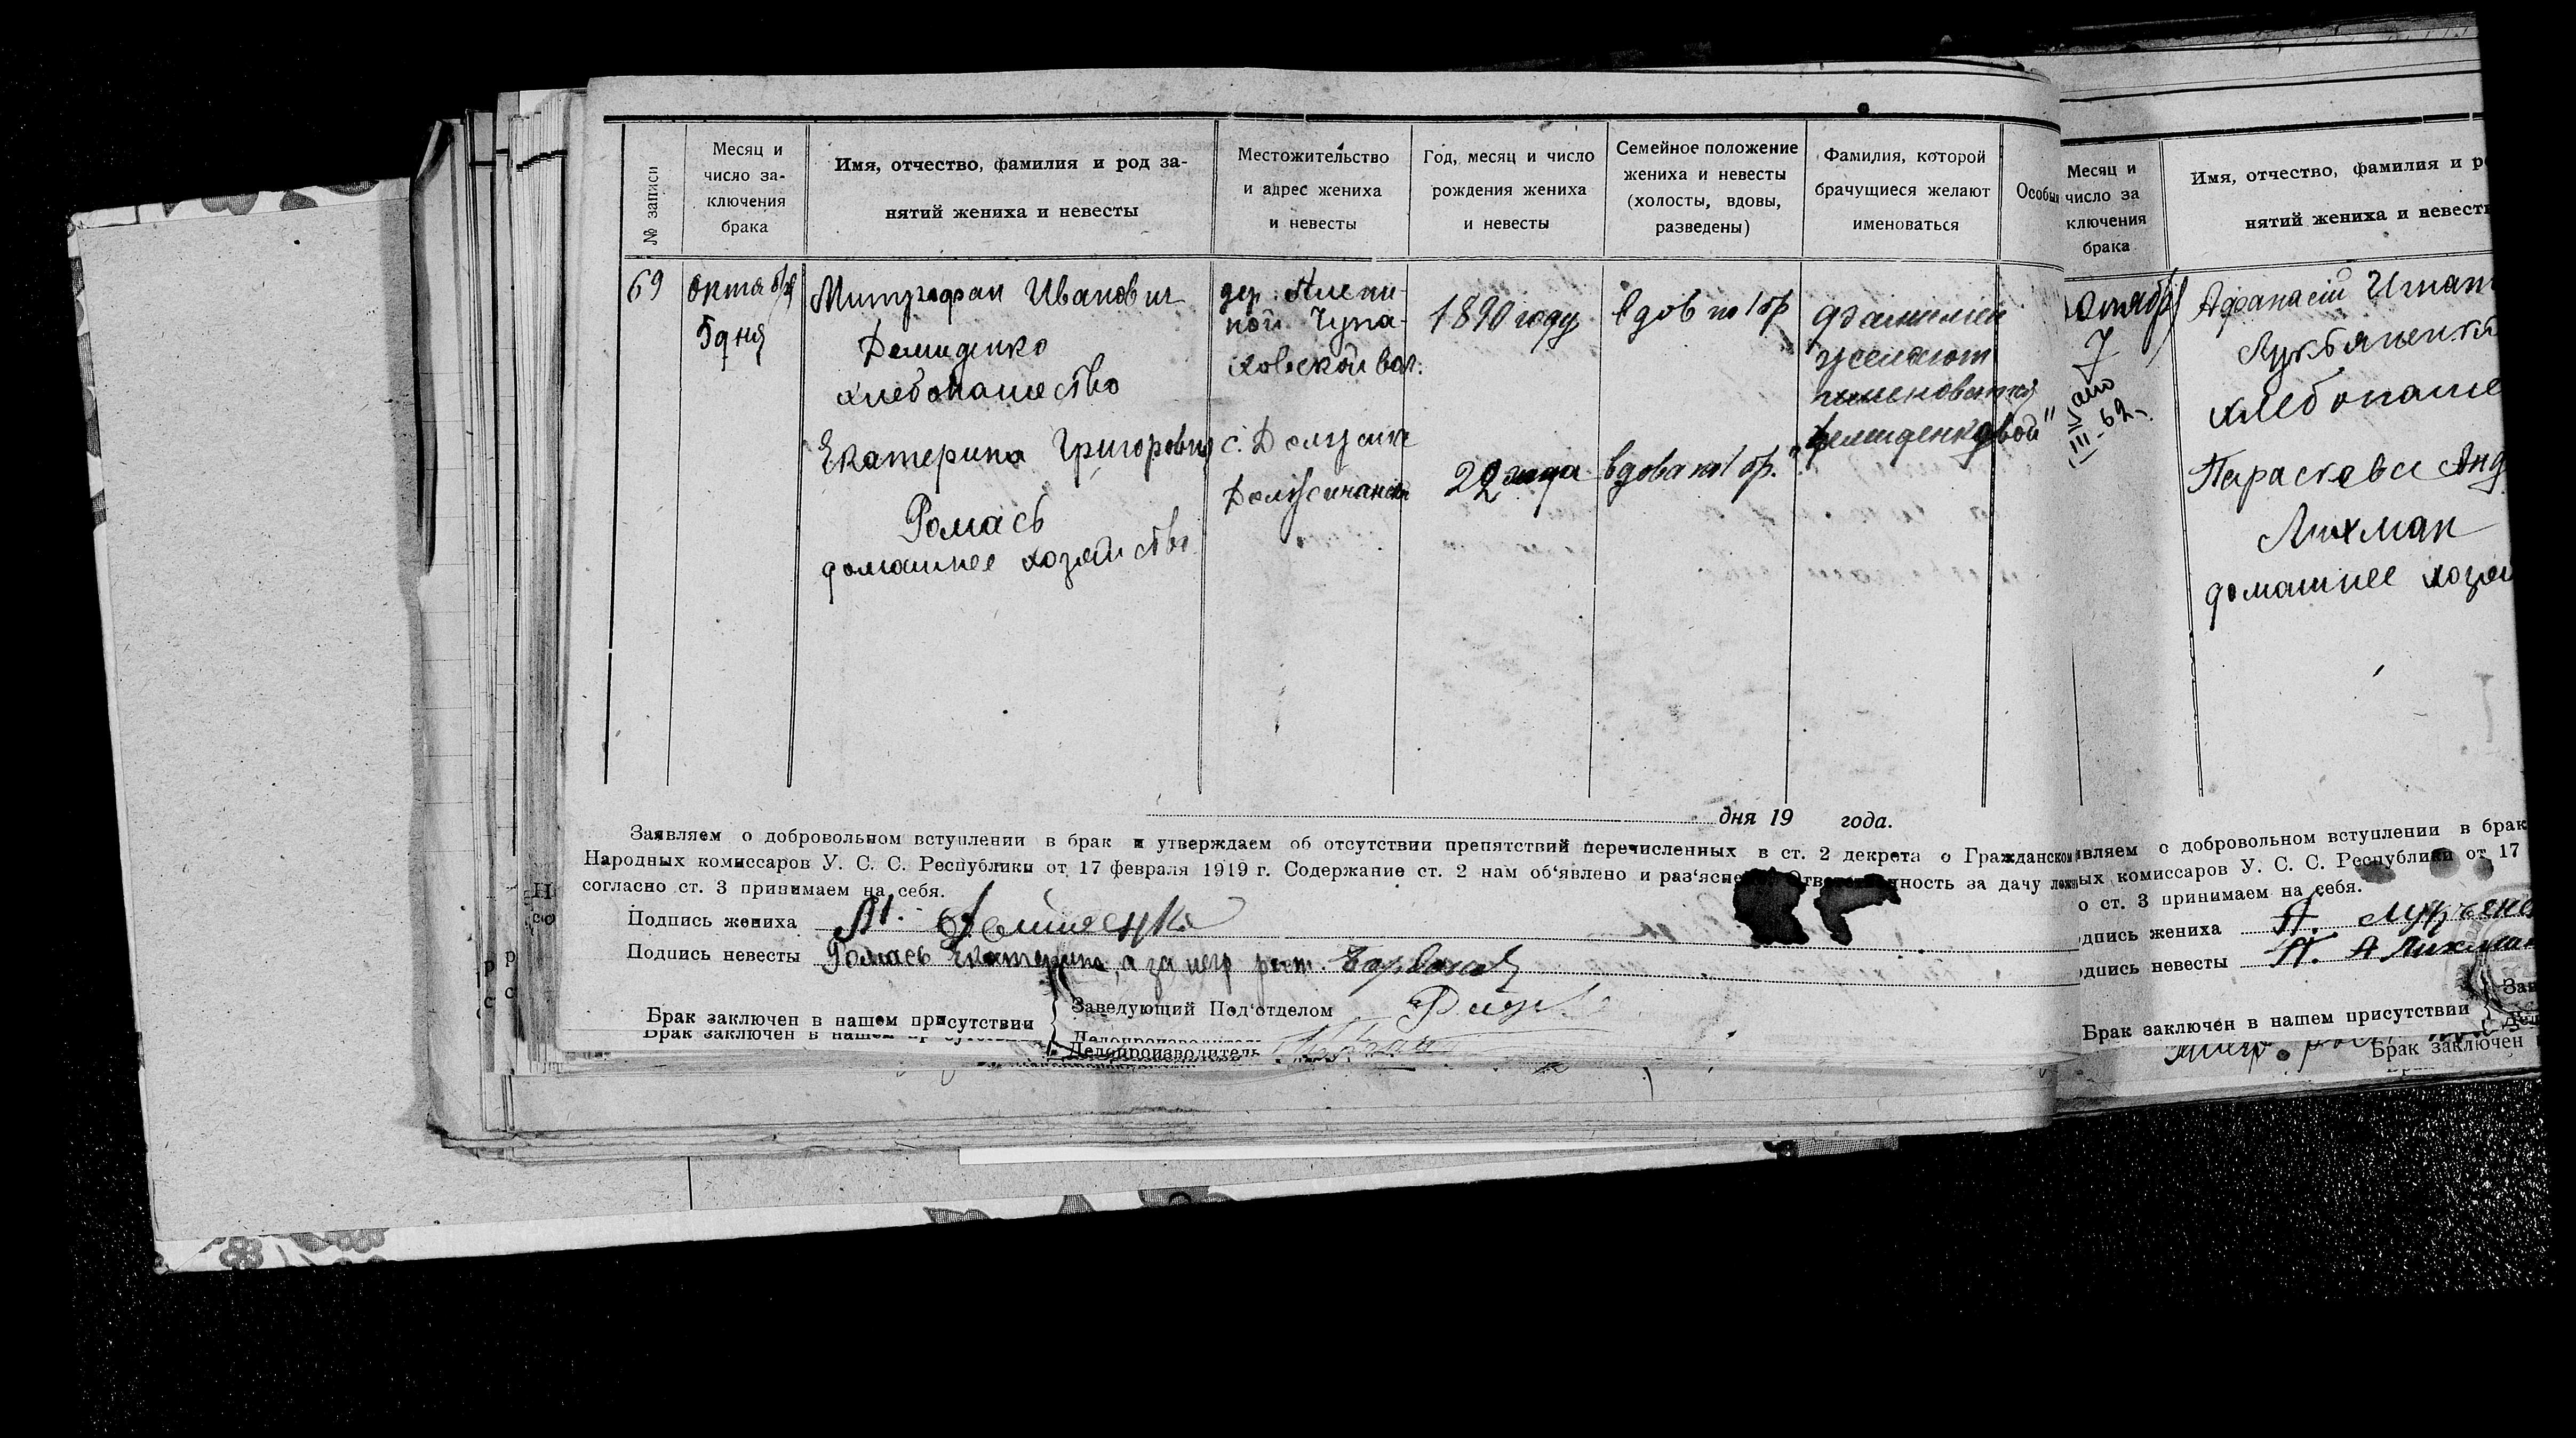 № записи
Месяц и
число за-
ключения
брака
Имя, отчество, фамилия и род за-
нятий жениха и невесты
Местожительство
и адрес жениха
и невесты
Год, месяц и число
рождения жениха
и невесты
Семейное положение
жениха и невесты
(холосты, вдовы,
разведены)
Фамилия, которой
брачущиеся желают
именоваться
Особы
69
Октября
5 дня
Митрофан Иванович
Демиденко
хлебопашество
дер.
Чупа-
ховской вол.
1890 году
вдов по 1 бр
фамилией
желают
именоватся
"Демиденковой"
Екатерина Григоровна
Ромась
домашнее хозяйство
с.
22 года
вдова по 1 бр.
дня 19 года.
Заявляем о добровольном вступлении в брак и утверждаем об отсутствии препятствий перечисленных в ст. 2 декрета о Гражданском
Народных комиссаров У. С. С. Республики от 17 февраля 1919 г. Содержание ст. 2 нам об'явлено и раз'ясне Ответственность за дачу лож
согласно ст. 3 принимаем на себя.
Подпись жениха Демиденко
Подпись невесты Ромась Екатерина, а за негр
Брак заключен в нашем присутствии
Заведующий Под'отделом
Делопроизводитель
Месяц и
число за
ключения
брака
Имя, отчество, фамилия и р
нятий жениха и невест
Октября
7
III-62
Афанасий Игнат
Лукьяненко
хлебопаше
Параскева Анд
Лихман
домашнее хозяй
вляем о добровольном вступлении в брак
ых комиссаров У. С. С. Республики от 17
о ст. 3 принимаем на себя.
дпись жениха А. Лукьянен
дпись невесты П. А Лихман
Брак заключен в нашем присутствии
Зав
Брак заключен